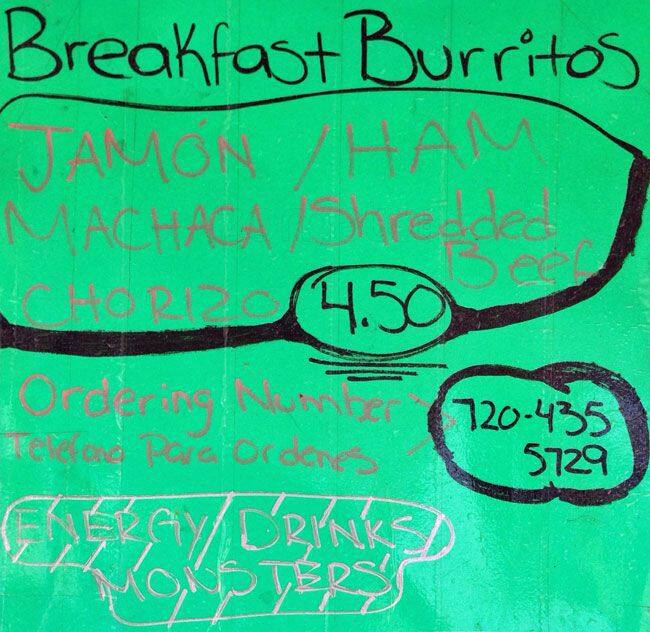 Breakfast Burritos
JAMÓN / HAM
MACHACA / Shredded
Beef
CHORIZO 4.50
Ordering Number
Telefono Para Ordenes
720-435
5729
ENERGY DRINKS
MONSTERS